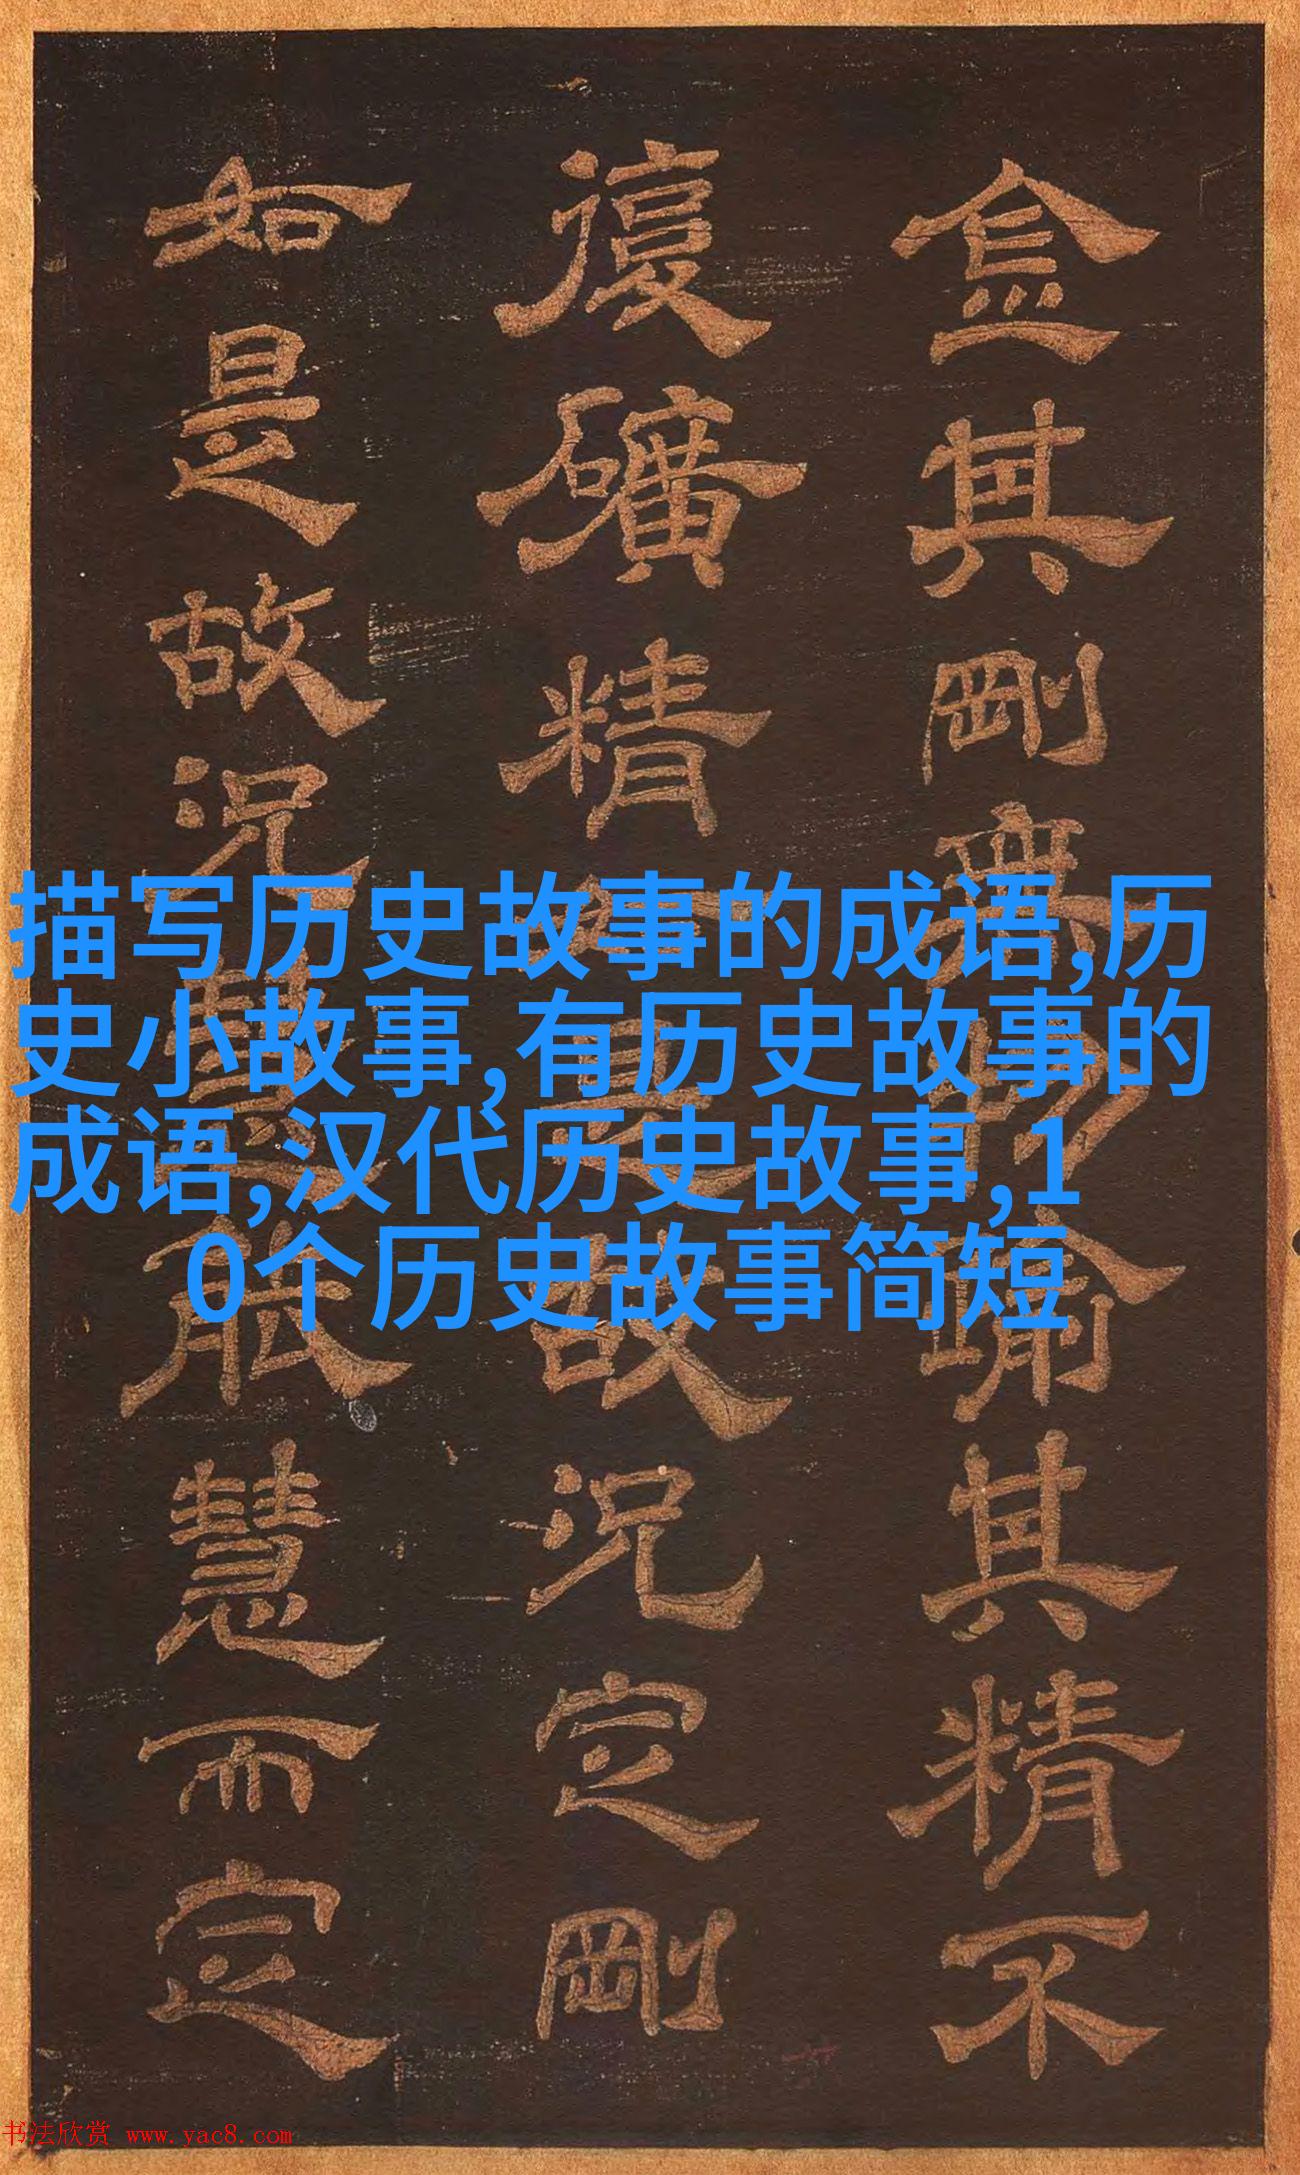 金其剛無物踰其精不
復礦精真故況定剛
如是故況慧能慧而定
描写历史故事的成语,历
史小故事,有历史故事的
成语,汉代历史故事,1
0个历史故事简短
书法欣赏 www.yac8.com